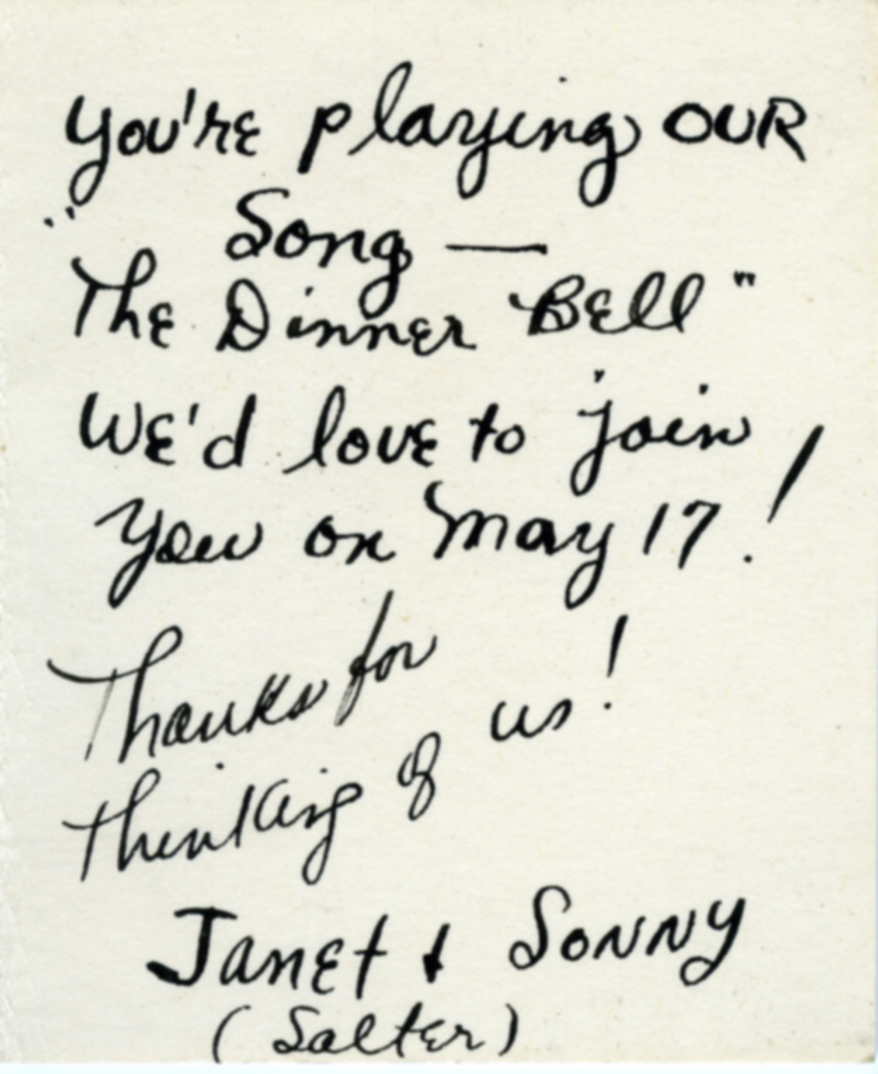 You're playing OUR
Song —
"The Dinner Bell"
We'd love to join
you on May 17!
Thanks for
thinking of us!
Janet & Sonny
(Salter)